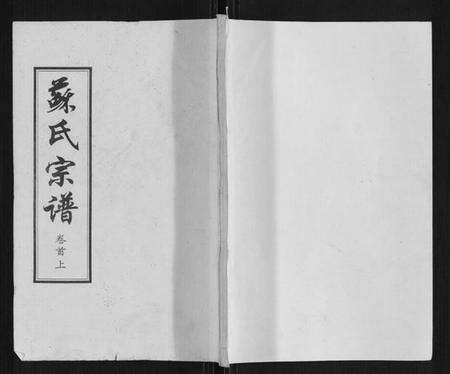 蘇氏宗谱
卷首上